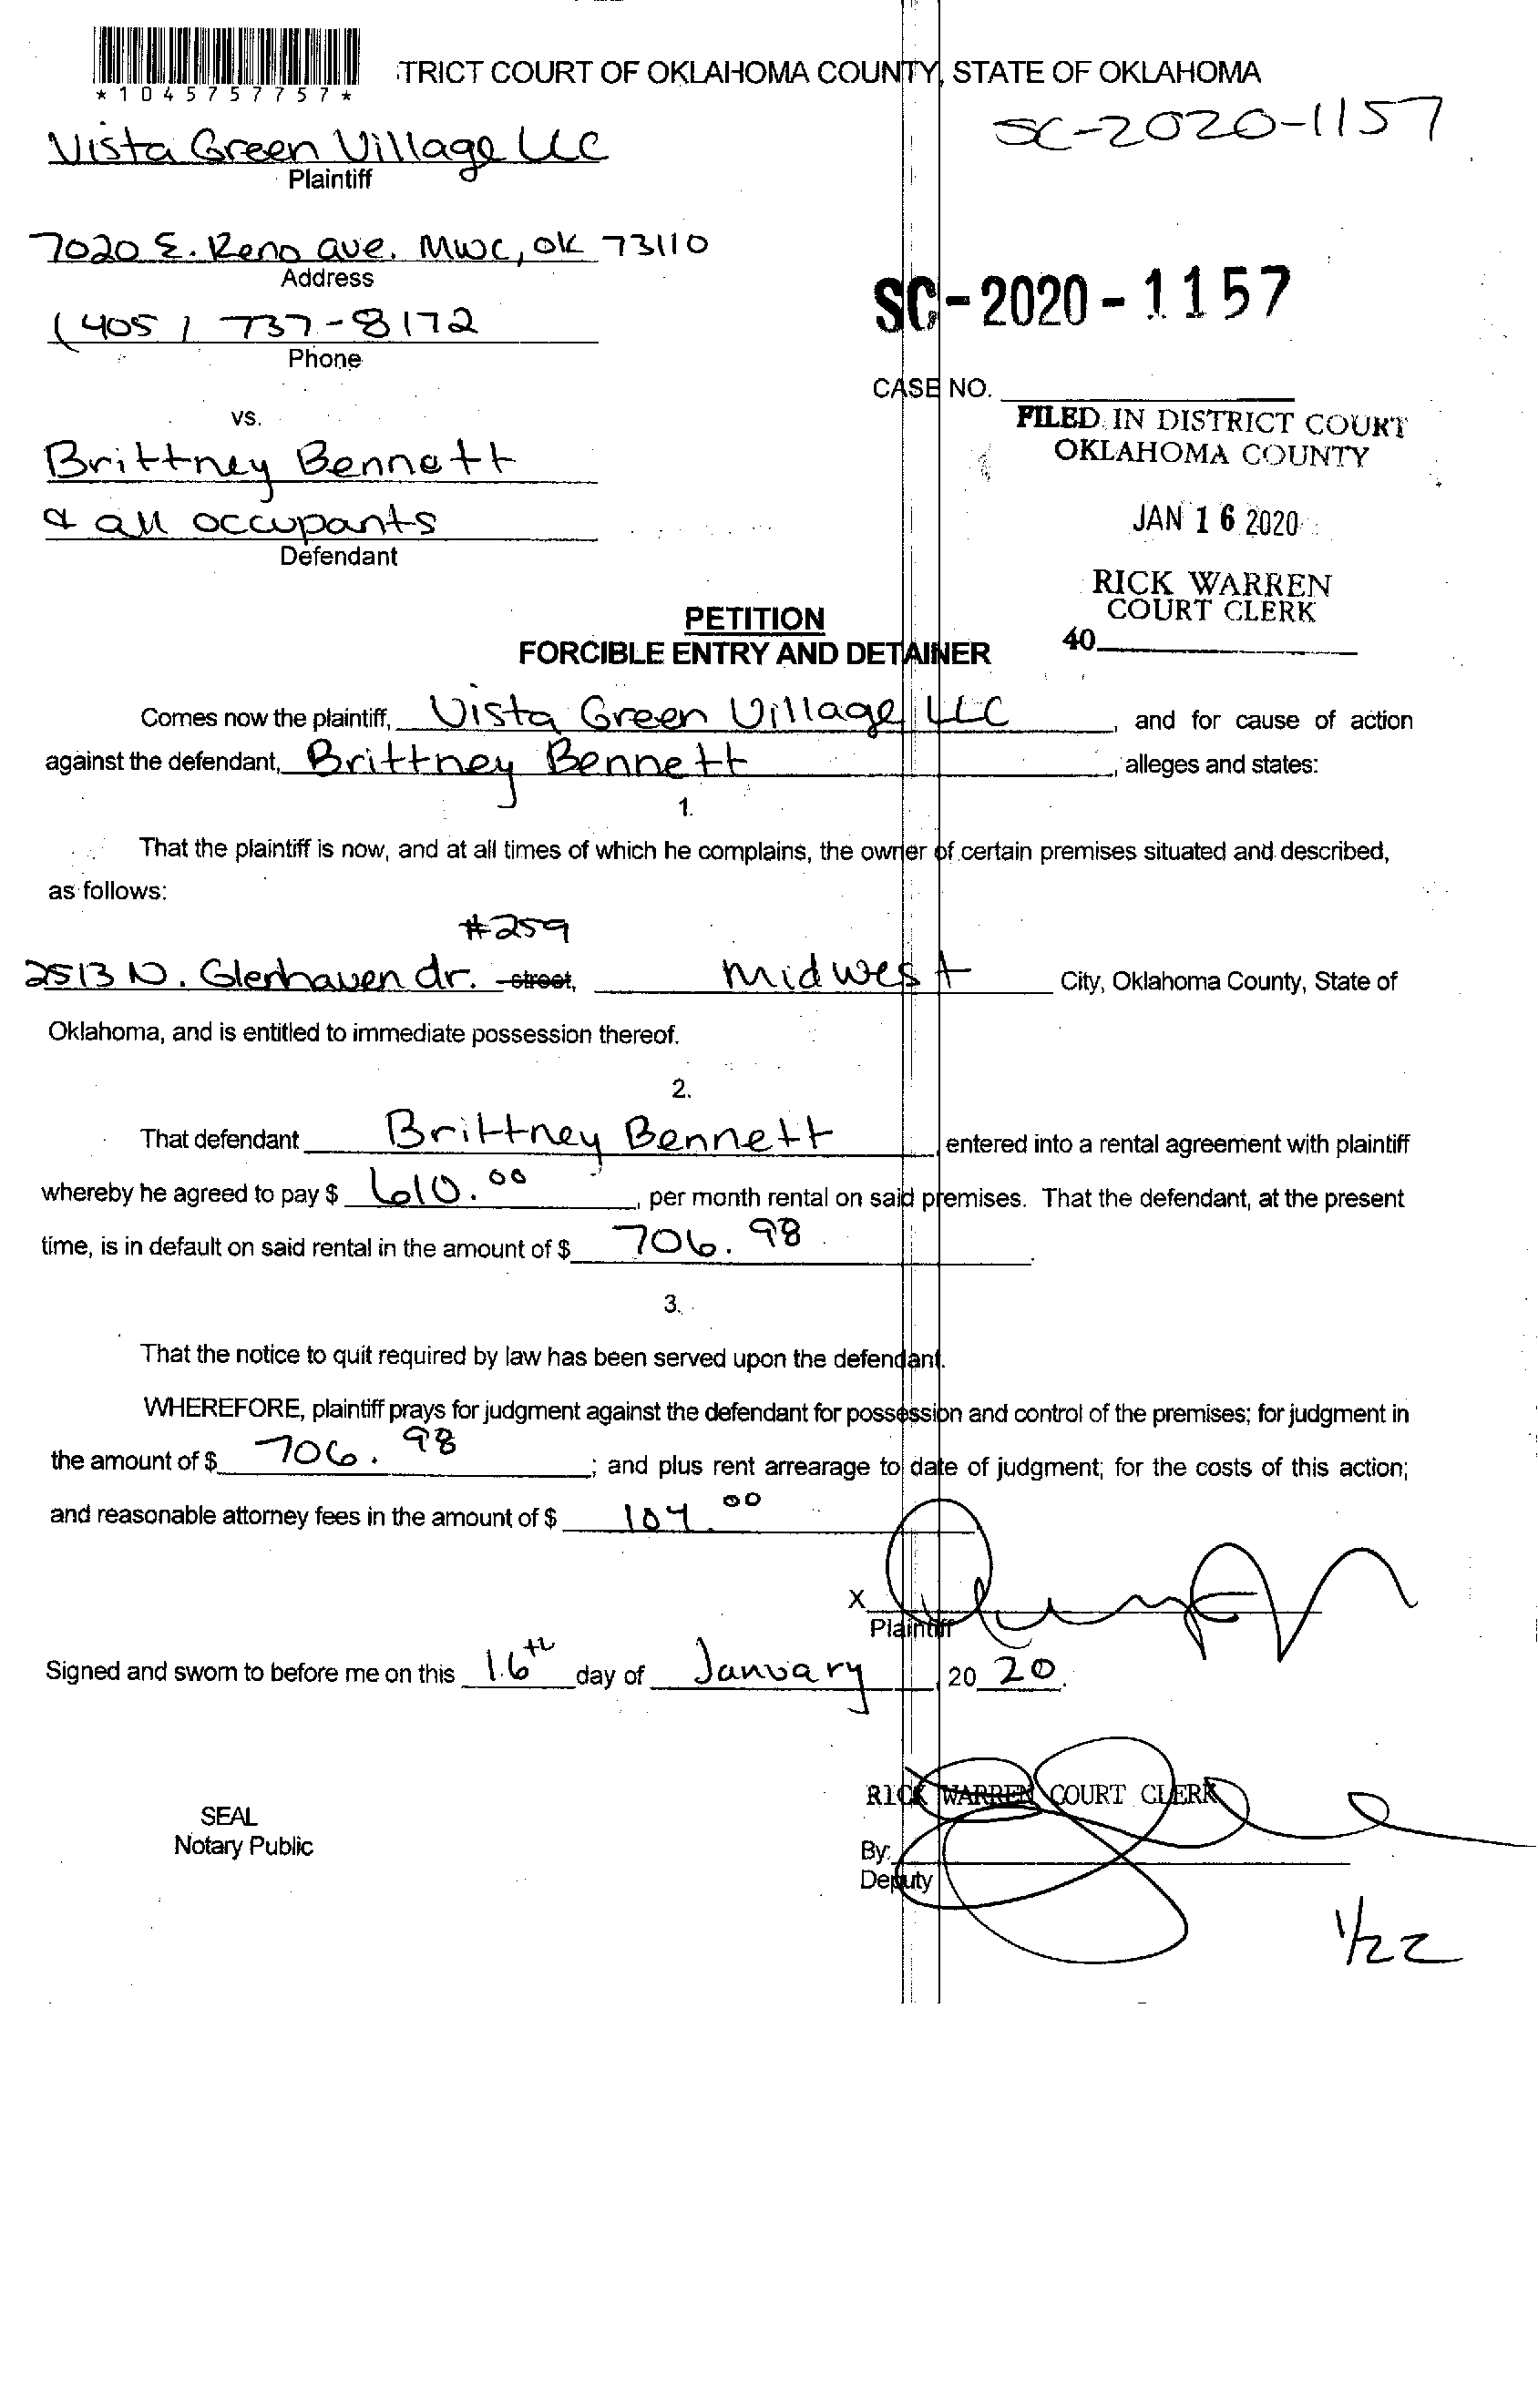 *1045757757*
TRICT COURT OF OKLAHOMA COUNTY, STATE OF OKLAHOMA
SC-2020-1157
Vista Green Village LLC
Plaintiff
7020 E. Reno ave. MWC, OK 73110
Address
(405) 737-8172
Phone
SC-2020-1157
CASE NO.
vs.
FILED IN DISTRICT COURT
OKLAHOMA COUNTY
Brittney Bennett
& all occupants
Defendant
JAN 16 2020
RICK WARREN
COURT CLERK
40
PETITION
FORCIBLE ENTRY AND DETAINER
Comes now the plaintiff, Vista Green Village LLC, and for cause of action
against the defendant, Brittney Bennett, alleges and states:
1.
That the plaintiff is now, and at all times of which he complains, the owner of certain premises situated and described,
as follows:
#259
2513 N. Glenhaven dr. street, Midwest City, Oklahoma County, State of
Oklahoma, and is entitled to immediate possession thereof.
2.
That defendant Brittney Bennett, entered into a rental agreement with plaintiff
whereby he agreed to pay $ 610.00, per month rental on said premises. That the defendant, at the present
time, is in default on said rental in the amount of $ 706.98.
3.
That the notice to quit required by law has been served upon the defendant.
WHEREFORE, plaintiff prays for judgment against the defendant for possession and control of the premises; for judgment in
the amount of $ 706.98; and plus rent arrearage to date of judgment; for the costs of this action;
and reasonable attorney fees in the amount of $ 104.00
X
Plaintiff
Signed and sworn to before me on this 16th day of January, 20 20.
RICK WARREN COURT CLERK
SEAL
Notary Public
By:
Deputy
1/22